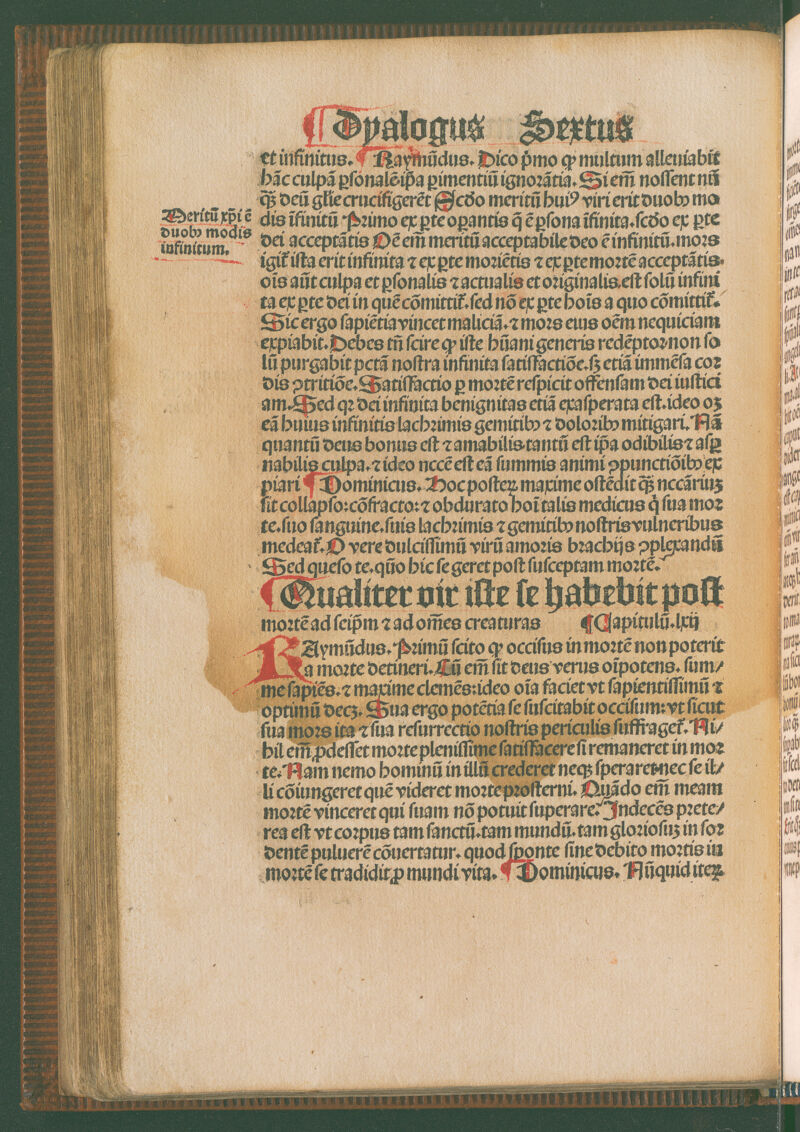 ¶ Dyalogus Sextus
et infinitus. ¶ Raymūdus. Dico p̄mo ꝙ multum alleuiabit
hāc culpā ꝑsonalē ip̄a ꝑimentiū ignorātia. Si em̄ nossent nū
qȝ deū glīe crucifigerēt Scd̄o meritū huiꝰ viri erit duobꝰ mo
Meritū xp̄i ē
duobꝰ modis
infinitum.
dis īfinitū Primo ex ꝑte oꝑantis q̄ ē ꝑsona īfinita. scd̄o ex ꝑte
dei acceptātis Oē em̄ meritū acceptabile deo ē infinitū. mors
igit̄ ista erit infinita ⁊ ex ꝑte moriētis ⁊ ex ꝑte mortē acceptātis.
oīs aūt culpa et ꝑsonalis ⁊ actualis et originalis. est solū infini
ta ex ꝑte dei in quē cōmittit̄. sed nō ex ꝑte hoīs a quo cōmittit̄.
Sic ergo sapiētia vincet maliciā. ⁊ mors eius oēm nequiciam
expiabit. Debes tn̄ scire ꝙ iste hūani generis redēptor non so
lū purgabit pctā nostra infinita satisfactiōe. sȝ etiā immēsa cor
dis ꝯtritiōe. Satisfactio ꝑ mortē respicit offensam dei iustici
am. Sed qꝛ dei infinita benignitas etiā exasperata est. ideo oȝ
eā huius infinitis lachrimis gemitibꝰ ⁊ doloribꝰ mitigari. Nā
quantū deus bonus est ⁊ amabilis. tantū est ip̄a odibilis ⁊ asꝑ
nabilis culpa. ⁊ ideo nccē est eā summis animi ꝯpunctiōibꝰ ex
piari ¶ Dominicus. Hoc posteꝝ maxime ostēdit qȝ nccāriuȝ
sit collapso: cōfracto: ⁊ obdurato hoī talis medicus q̇ sua mor
te. suo sanguine. suis lachrimis ⁊ gemitibꝰ nostris vulneribus
medeat̄. O vere dulcissimū virū amoris brachijs ꝯplexandū
Sed queso te. qūo hic se geret post susceptam mortē.
¶ Qualiter vir iste se habebit post
mortē ad seip̄m ⁊ ad om̄es creaturas ¶ Capitulū. lxij
RAymūdus. Primū scito ꝙ occisus in mortē non poterit
a morte detineri. Cū em̄ sit deus verus oīpotens. sum/
me sapiēs. ⁊ maxime clemēs: ideo oīa faciet vt sapientissimū ⁊
optimū decȝ. Sua ergo potētia se suscitabit occisum: vt sicut
sua mors ita ⁊ sua resurrectio nostris periculis suffraget̄. Ni/
hil em̄ ꝓdesset morte plenissime satisfacere si remaneret in mor
te. Nam nemo hominū in illū crederet neqȝ speraret. nec se il/
li cōiungeret quē videret morte prosterni. Quādo em̄ meam
mortē vinceret qui suam nō potuit superare. Indecēs prete/
rea est vt corpus tam sanctū. tam mundū. tam gloriosuȝ in sor
dentē puluerē cōuertatur. quod sponte sine debito mortis in
mortē se tradidit ꝓ mundi vita. ¶ Dominicus. Nūquid iteꝝ